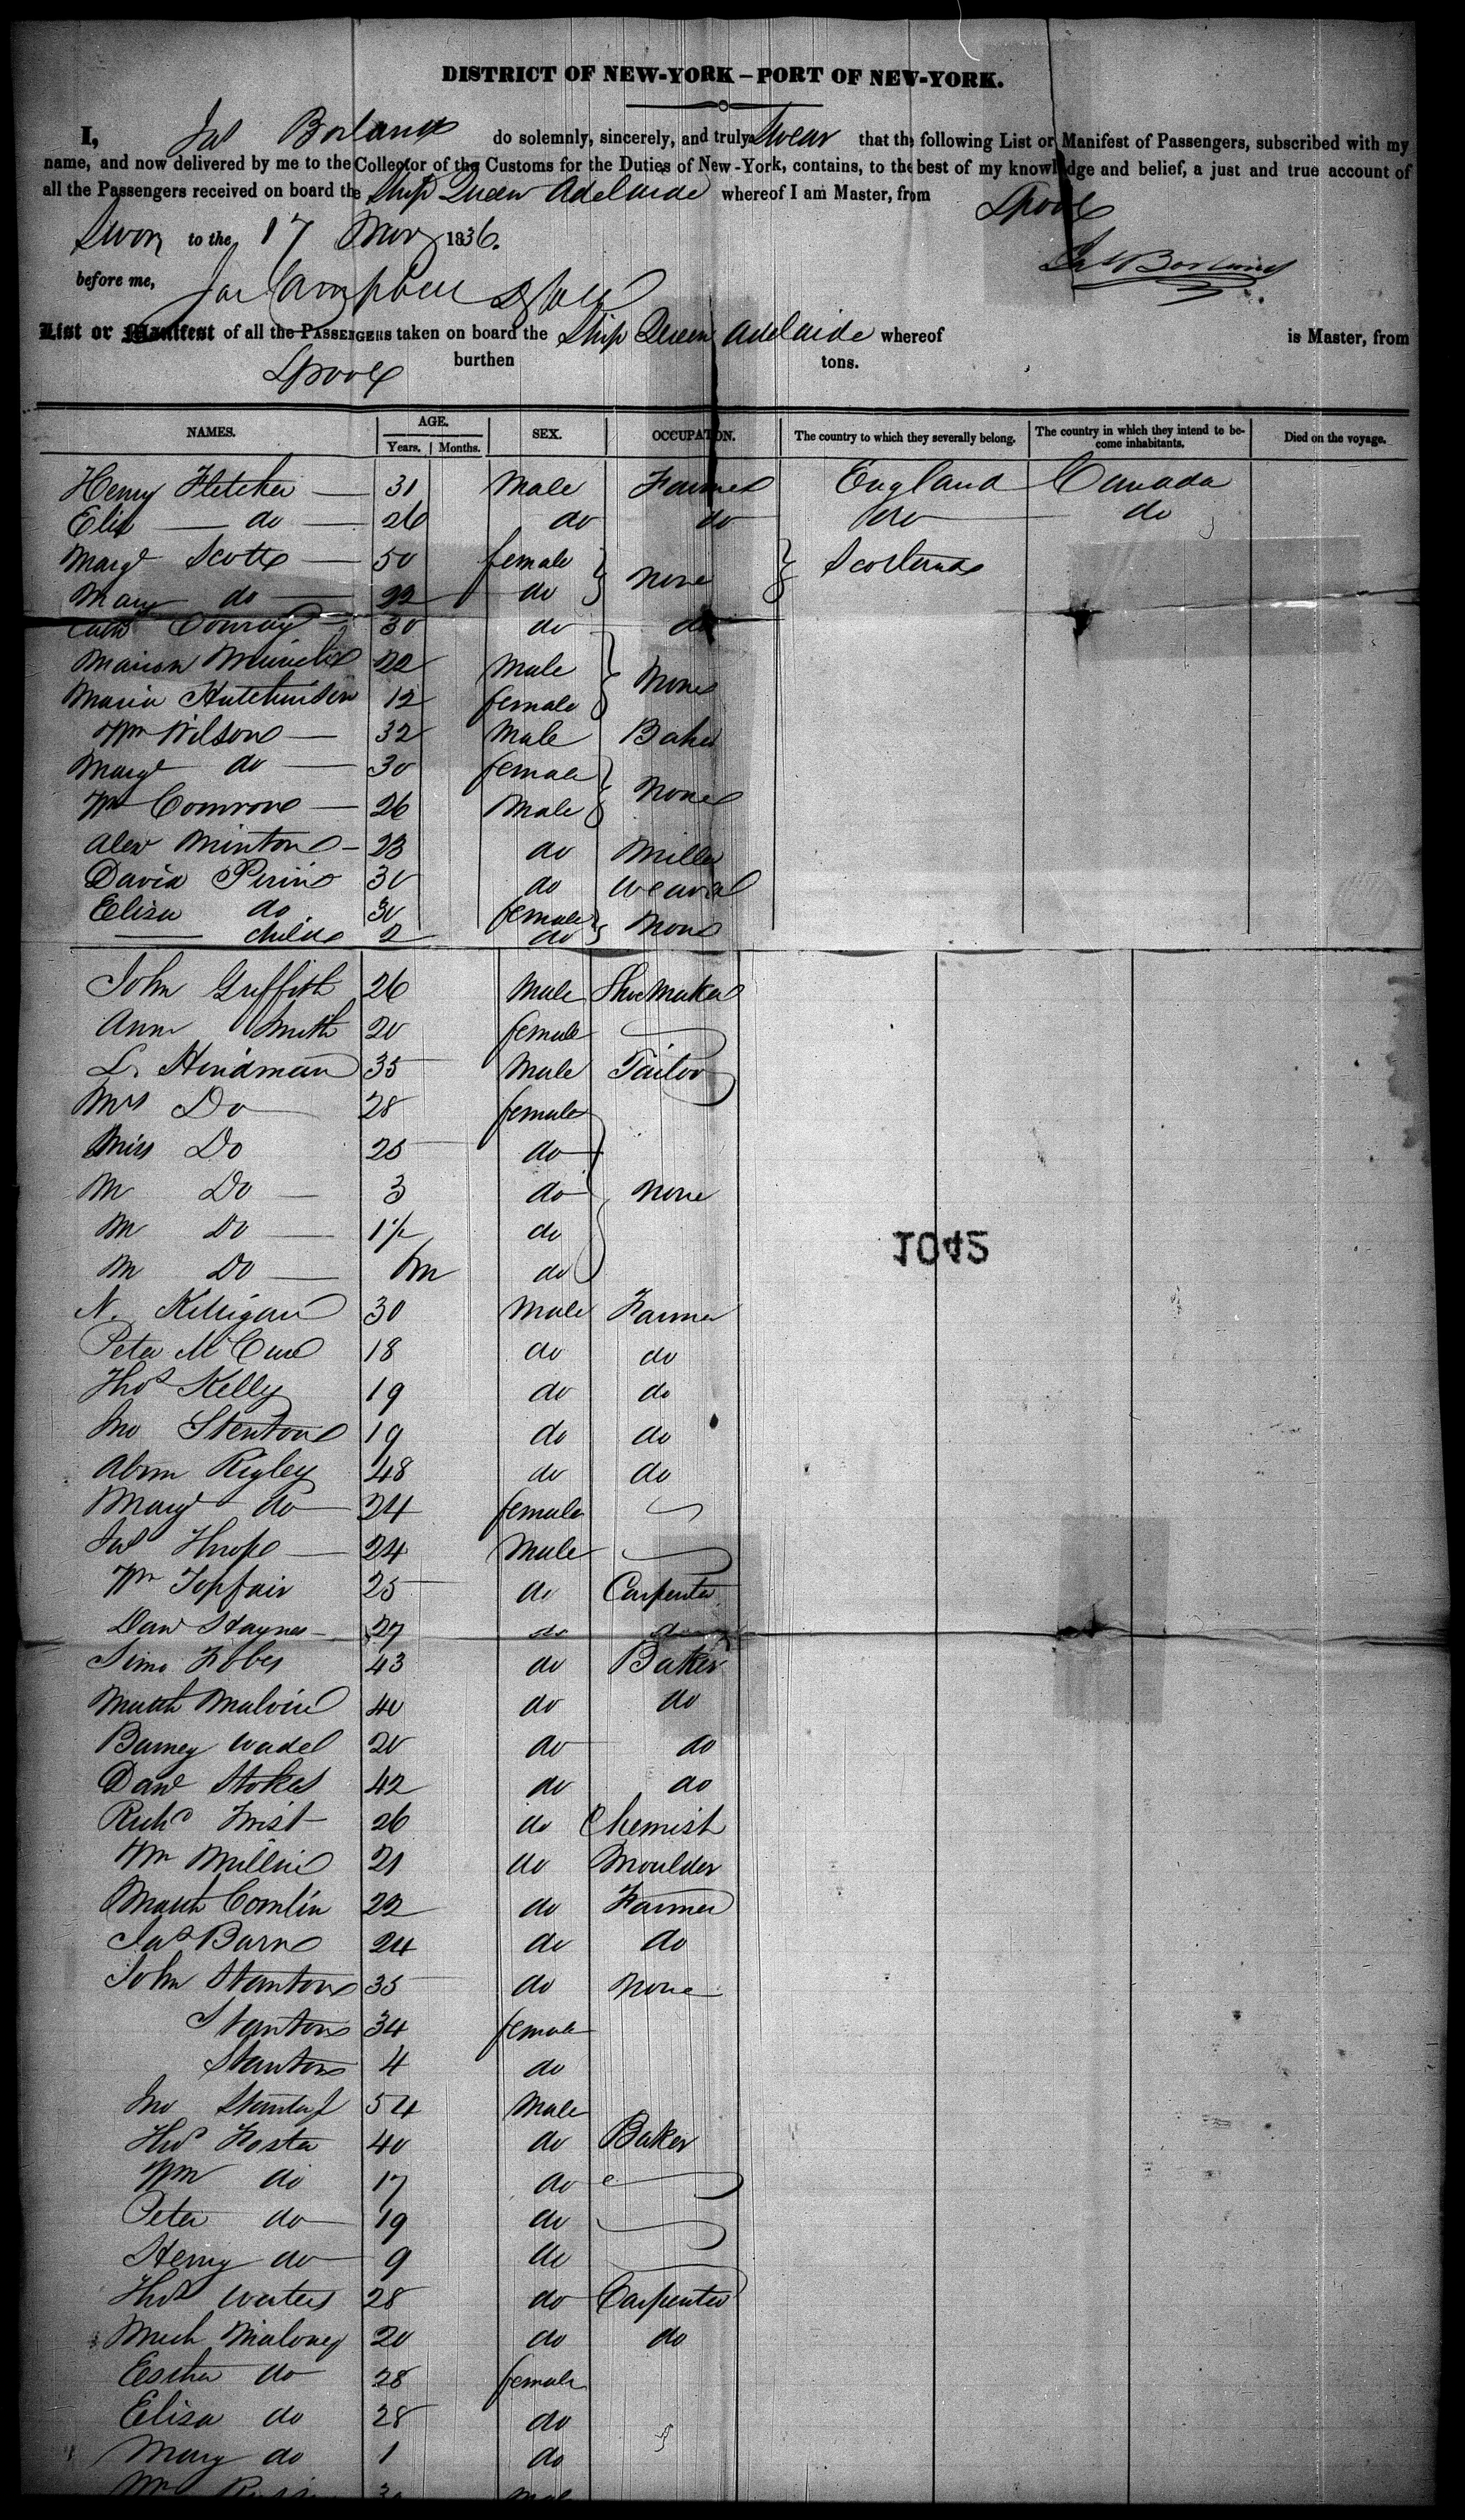 DISTRICT OF NEW-YORK – PORT OF NEW-YORK.
I, Jas Borland do solemnly, sincerely, and truly swear that the following List or Manifest of Passengers, subscribed with my
name, and now delivered by me to the Collector of the Customs for the Duties of New-York, contains, to the best of my knowledge and belief, a just and true account of
all the Passengers received on board the Ship Queen Adelaide whereof I am Master, from Lpool
Sworn to the 17 1836. Jas Borland
before me, Campbell
List or Manifest of all the PASSENGERS taken on board the Ship Queen Adelaide whereof is Master, from
Lpool burthen tons.
NAMES. AGE. Years. Months. SEX. OCCUPATION. The country to which they severally belong. The country in which they intend to become inhabitants. Died on the voyage.
Henry Fletcher 31 Male Farmer England Canada
do 26 do do do do
Margt Scott 50 female none Scotland
Mary do 22 do
Conray 30 do do
22 Male None
Maria Hutchinson 12 female
Wm Wilson 32 Male Baker
Margt do 30 female None
Wm 26 Male
Alex Minton 23 do Miller
David 30 do weaver
Eliza do 30 female None
child 2 do
John Griffith 26 Male Shoemaker
Ann Smith 20 female
L. Hindman 35 Male Tailor
Mrs Do 28 female
Miss Do 25 do
M Do 3 do none
M Do 1½ do
M Do 6m do
N. 30 Male Farmer
Peter McCue 18 do do
Thos Kelly 19 do do
Jno Stenton 19 do do
Abm Rigley 48 do do
Margt do 24 female
Jas 24 Male
Wm Topfair 25 do Carpenter
Danl Haynes 27 do do
43 do Baker
Matth 40 do do
Barney Wadel 20 do do
Danl Stokes 42 do do
Richd 26 do Chemist
Wm 21 do Moulder
Matth Comlin 22 do Farmer
Jas Barn 24 do do
John Stanton 35 do none
Stanton 34 female
Stanton 4 do
Jno 54 Male
Thos Foster 40 do Baker
Wm do 17 do
Peter do 19 do
Henry do 9 do
Thos Waters 28 do Carpenter
Mich Maloney 20 do do
Esther do 28 female
Eliza do 28 do
Mary do 1 do
1042